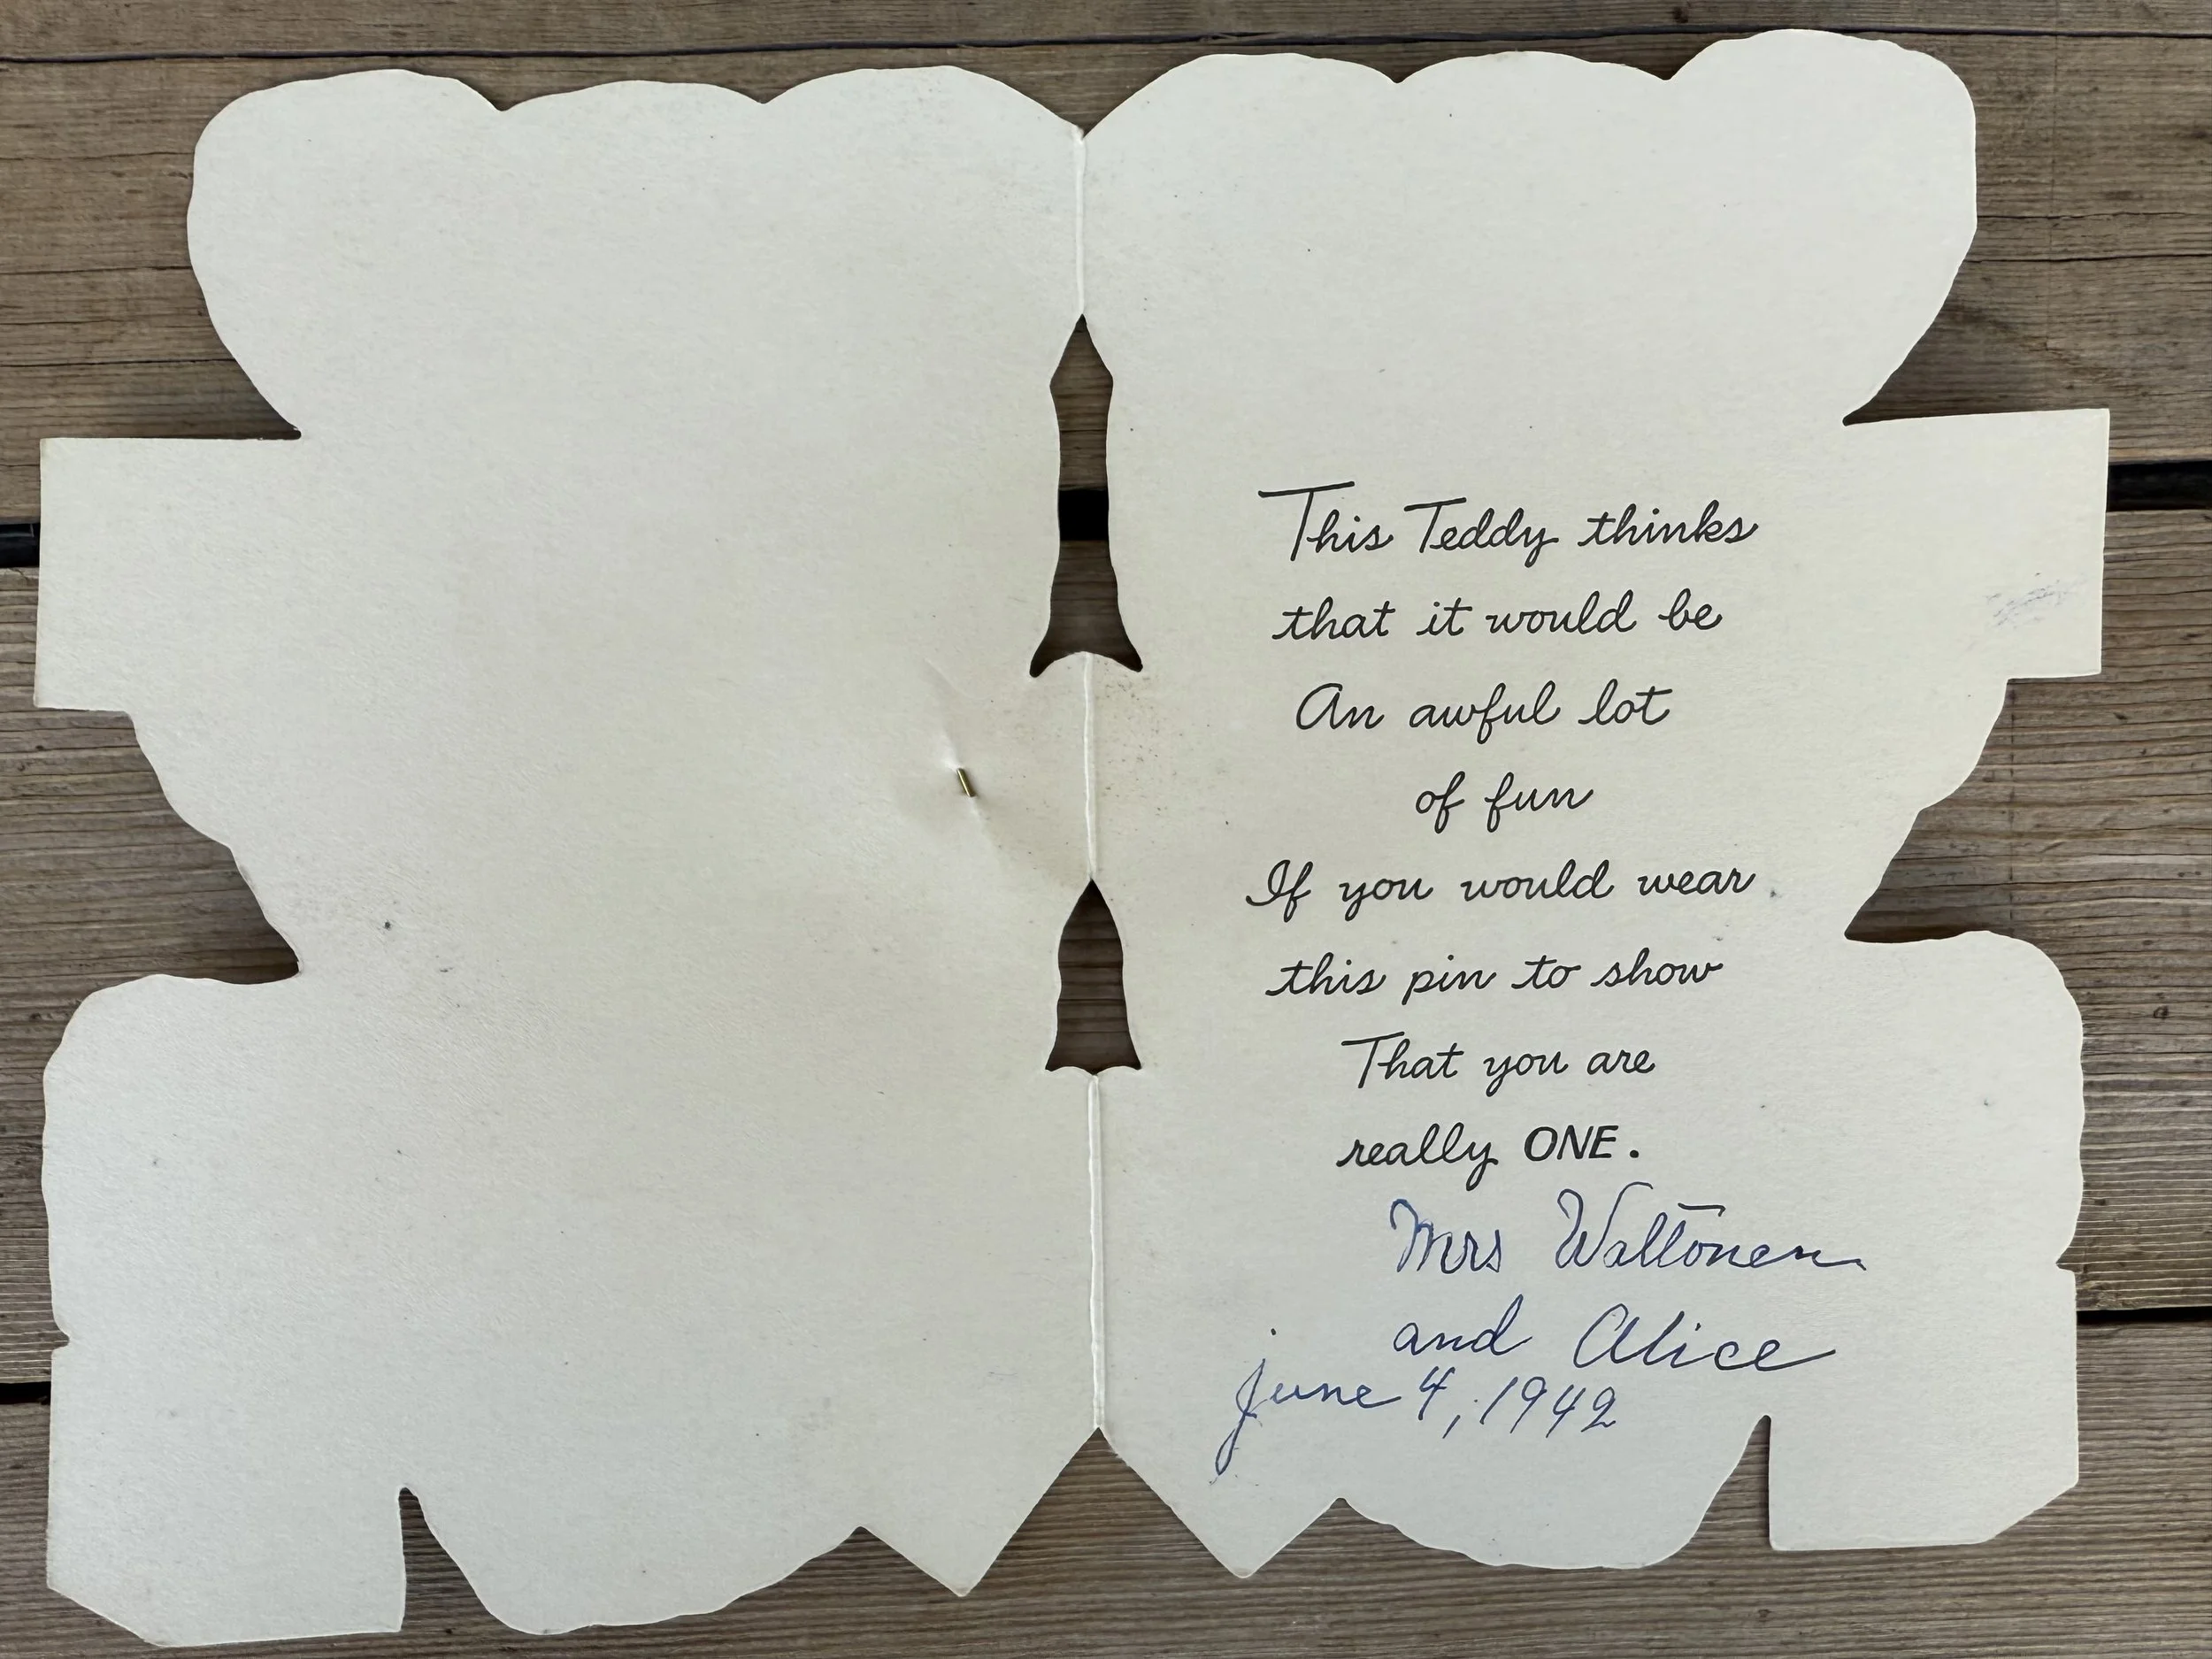 This Teddy thinks
that it would be
An awful lot
of fun
If you would wear
this pin to show
That you are
really ONE.
Mrs Waltonen
and Alice
June 4, 1942